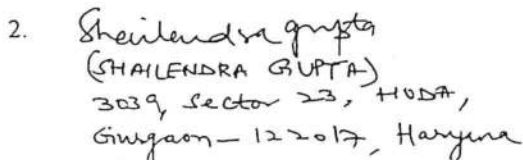 2. Shailendra gupta
(SHAILENDRA GUPTA)
3039, Sector 23, HUDA,
Gurgaon - 122017, Haryana